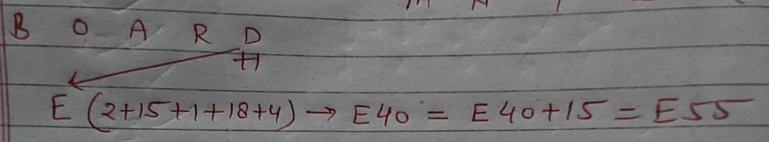 B O A R D
+1
E (2+15+1+18+4) → E40 = E40+15 = E55